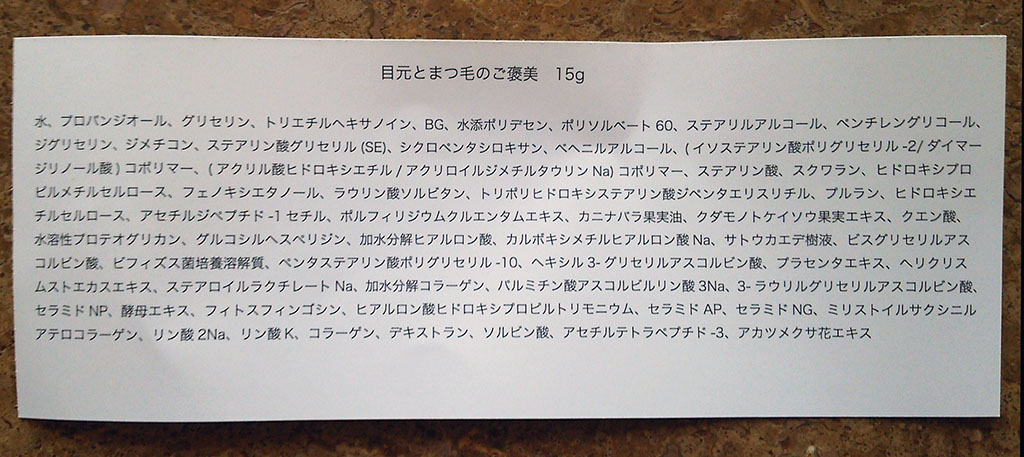 目元とまつ毛のご褒美　15g
水、プロパンジオール、グリセリン、トリエチルヘキサノイン、BG、水添ポリデセン、ポリソルベート 60、ステアリルアルコール、ペンチレングリコール、
ジグリセリン、ジメチコン、ステアリン酸グリセリル (SE)、シクロペンタシロキサン、ベヘニルアルコール、( イソステアリン酸ポリグリセリル -2/ ダイマー
ジリノール酸 ) コポリマー、( アクリル酸ヒドロキシエチル / アクリロイルジメチルタウリン Na) コポリマー、ステアリン酸、スクワラン、ヒドロキシプロ
ピルメチルセルロース、フェノキシエタノール、ラウリン酸ソルビタン、トリポリヒドロキシステアリン酸ジペンタエリスリチル、プルラン、ヒドロキシエ
チルセルロース、アセチルジペプチド -1 セチル、ポルフィリジウムクルエンタムエキス、カニナバラ果実油、クダモノトケイソウ果実エキス、クエン酸、
水溶性プロテオグリカン、グルコシルヘスペリジン、加水分解ヒアルロン酸、カルボキシメチルヒアルロン酸 Na、サトウカエデ樹液、ビスグリセリルアス
コルビン酸、ビフィズス菌培養溶解質、ペンタステアリン酸ポリグリセリル -10、ヘキシル 3- グリセリルアスコルビン酸、プラセンタエキス、ヘリクリス
ムストエカスエキス、ステアロイルラクチレート Na、加水分解コラーゲン、パルミチン酸アスコルビルリン酸 3Na、3- ラウリルグリセリルアスコルビン酸、
セラミド NP、酵母エキス、フィトスフィンゴシン、ヒアルロン酸ヒドロキシプロピルトリモニウム、セラミド AP、セラミド NG、ミリストイルサクシニル
アテロコラーゲン、リン酸 2Na、リン酸 K、コラーゲン、デキストラン、ソルビン酸、アセチルテトラペプチド -3、アカツメクサ花エキス